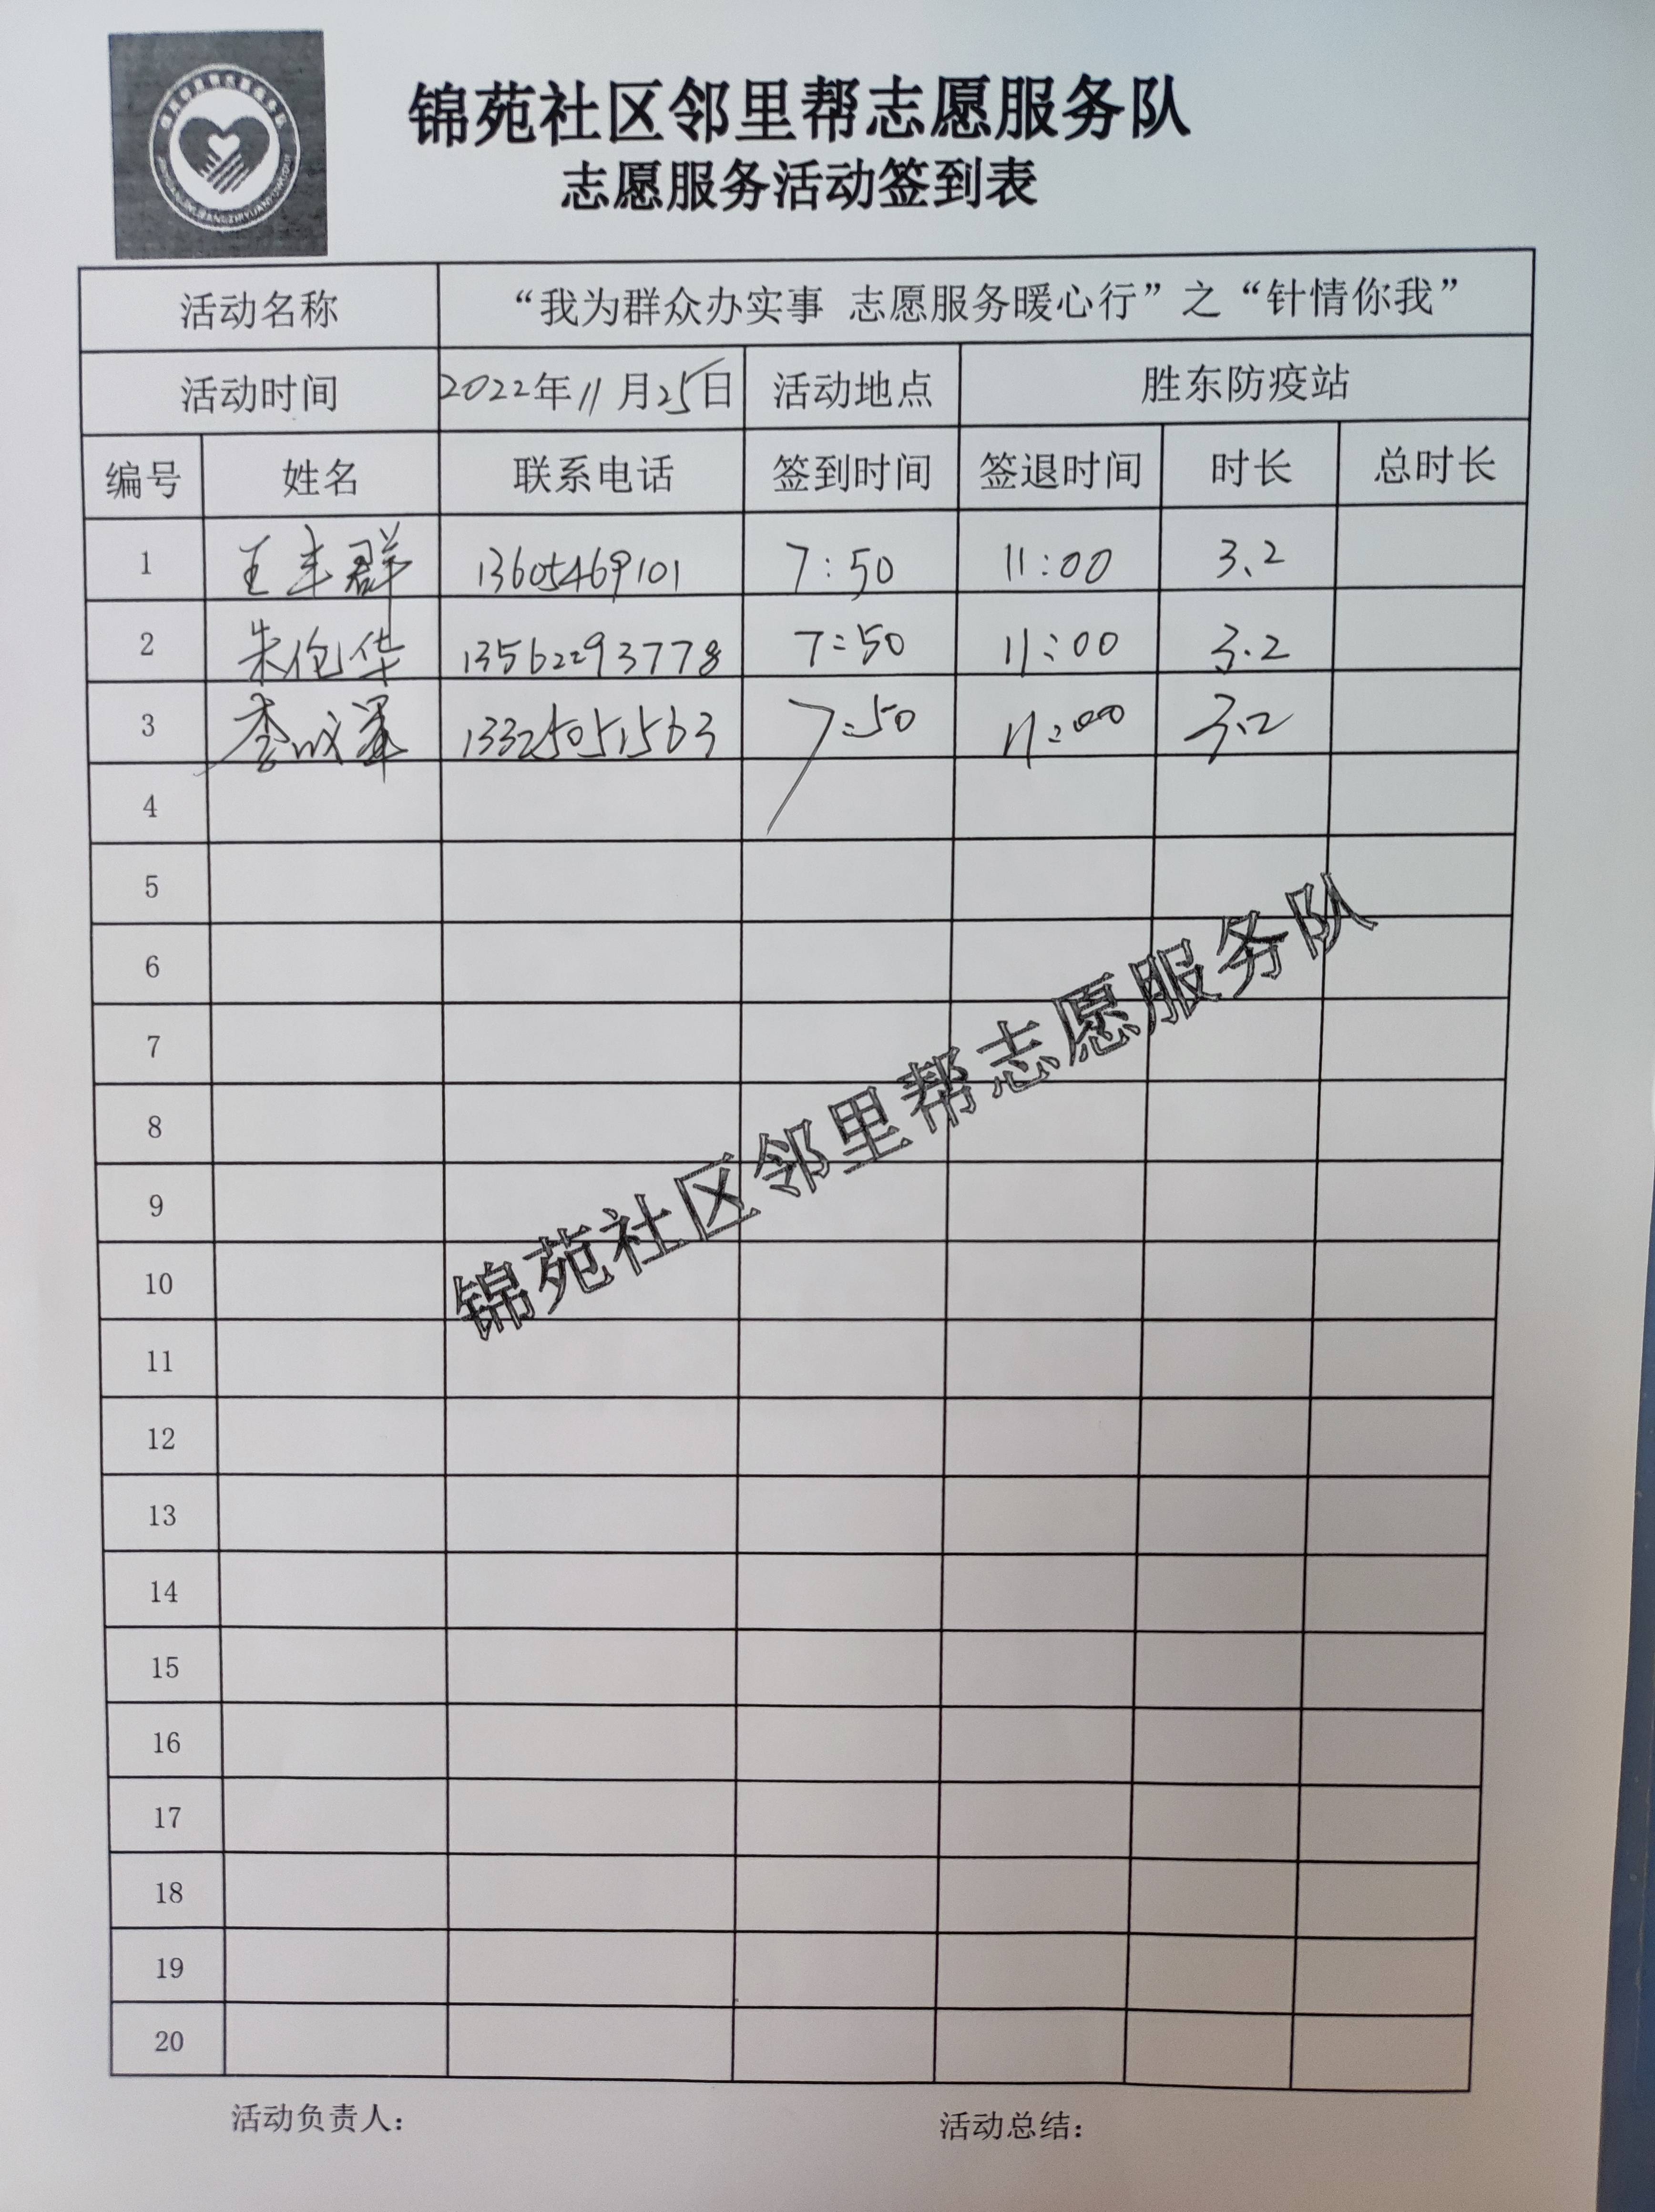 锦苑社区邻里帮志愿服务队
志愿服务活动签到表
活动名称 “我为群众办实事 志愿服务暖心行”之“针情你我”
活动时间 2022年11月25日 活动地点 胜东防疫站
编号 姓名 联系电话 签到时间 签退时间 时长 总时长
1 王丰群 13605469101 7:50 11:00 3.2
2 朱伦华 13562293778 7:50 11:00 3.2
3 李 13325051563 7:50 11:00 3.2
4
5
6
7
8
9
10
11
12
13
14
15
16
17
18
19
20
锦苑社区邻里帮志愿服务队
活动负责人： 活动总结：